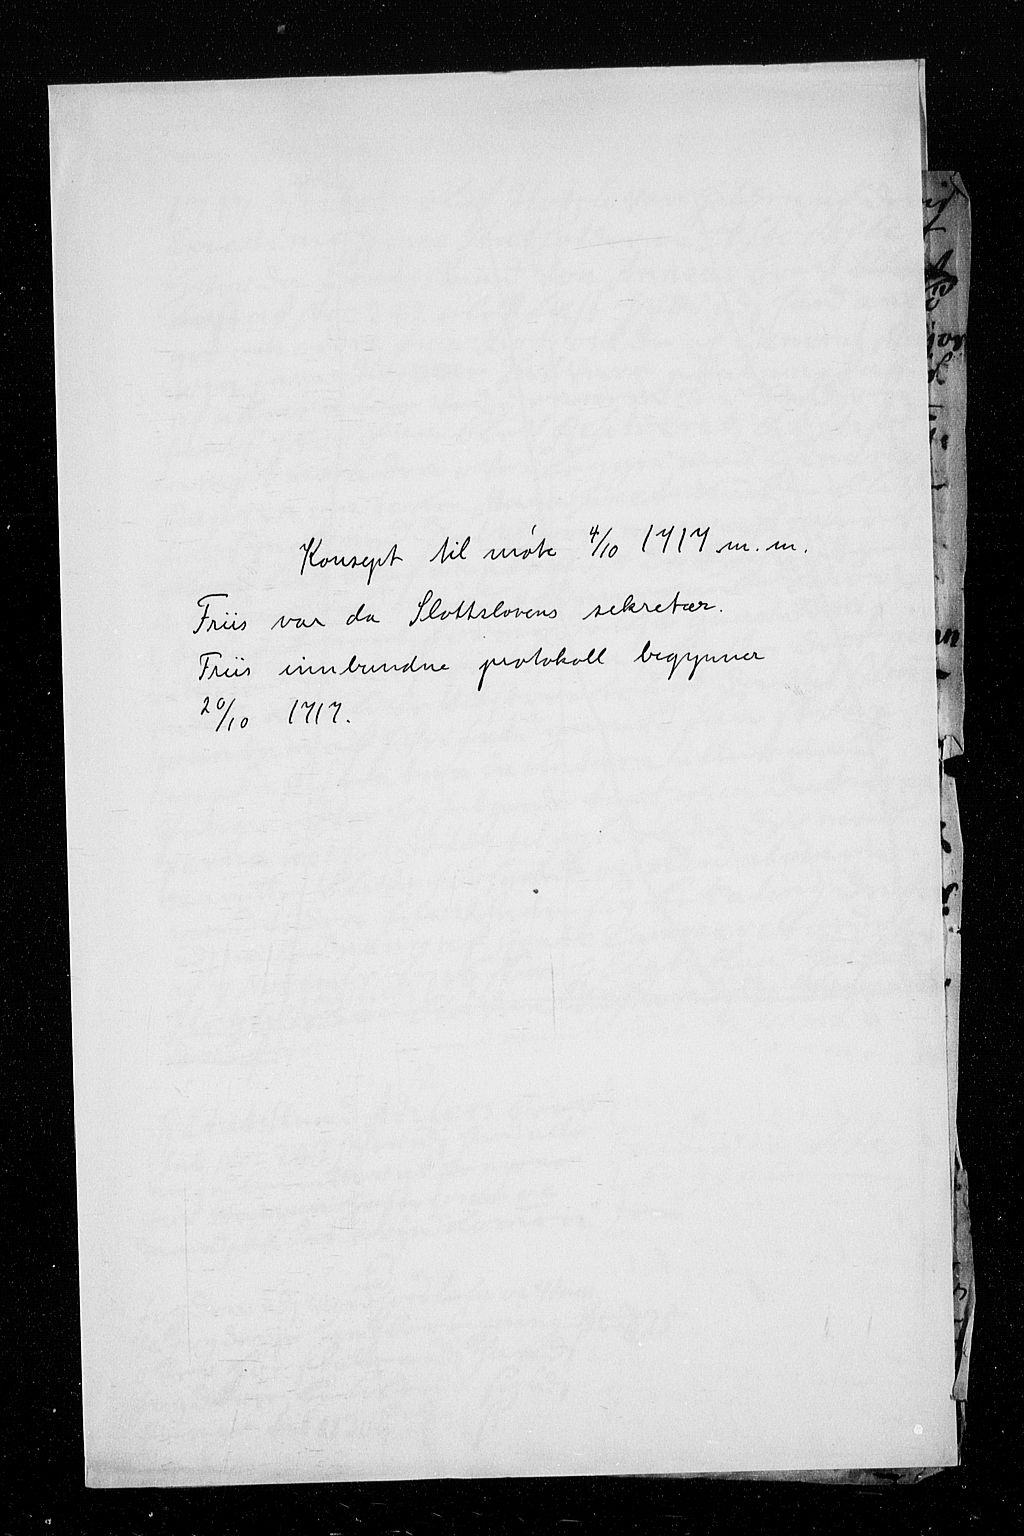 Konsept til møte 4/10 1717 m. m.
Friis var da Slottslovens sekretær.
Friis innbundne protokoll begynner
20/10 1717.